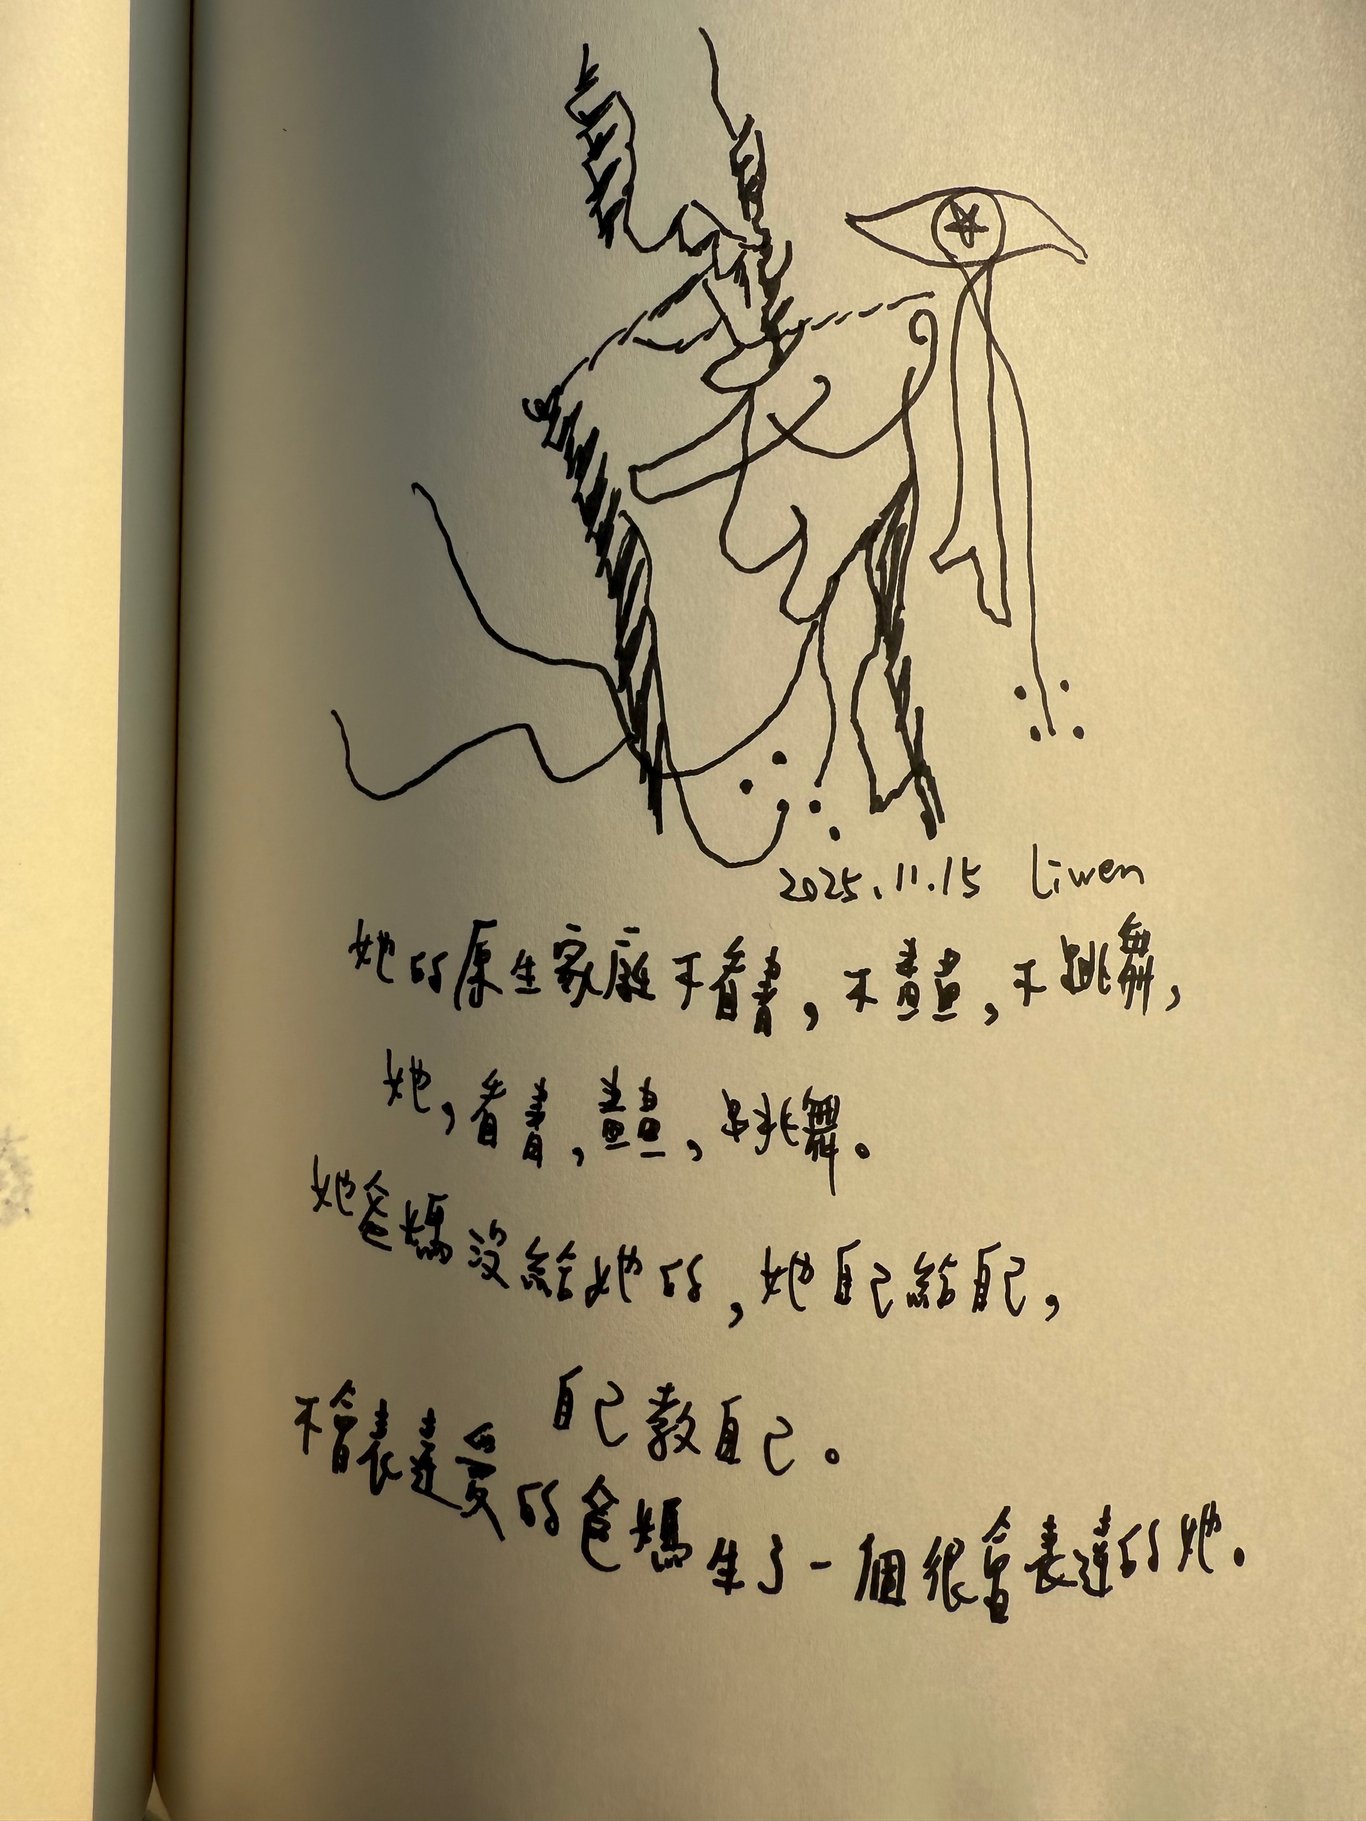 2025.11.15 Liwen
她的原生家庭不看書,不畫畫,不跳舞,
她,看書,畫畫,跳舞。
她爸媽沒給她的,她自己給自己,
自己教自己。
不會表達愛的爸媽生了一個很會表達的她。